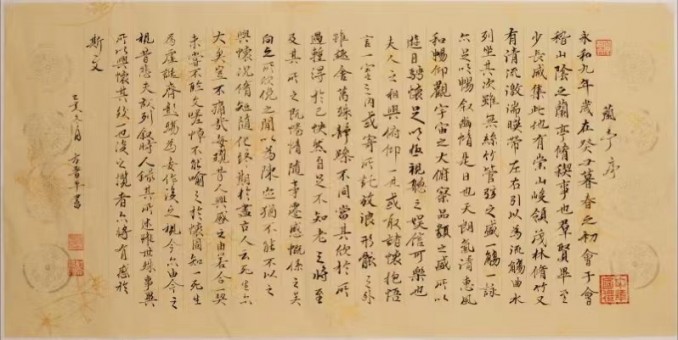 蘭亭序
永和九年歲在癸丑暮春之初會于會
稽山陰之蘭亭脩稧事也羣賢畢至
少長咸集此地有崇山峻領茂林脩竹又
有清流激湍暎帶左右引以為流觴曲水
列坐其次雖無絲竹管弦之盛一觴一詠
亦足以暢叙幽情是日也天朗氣清惠風
和暢仰觀宇宙之大俯察品類之盛所以
遊目騁懷足以極視聽之娛信可樂也
夫人之相與俯仰一世或取諸懷抱悟
言一室之內或寄所託放浪形骸之外
雖趣舍萬殊靜躁不同當其欣於所
遇輒得於己快然自足不知老之將至
及其所之既惓情隨事遷感慨係之矣
向之所欣俛仰之間以為陳迹猶不能不以之
興懷況脩短隨化終期於盡古人云死生亦
大矣豈不痛哉每攬昔人興感之由若合一契
未嘗不臨文嗟悼不能喻之於懷固知一死生
為虛誕齊彭殤為妄作後之視今亦由今之
視昔悲夫故列叙時人錄其所述雖世殊事異
所以興懷其致一也後之攬者亦將有感於
斯文